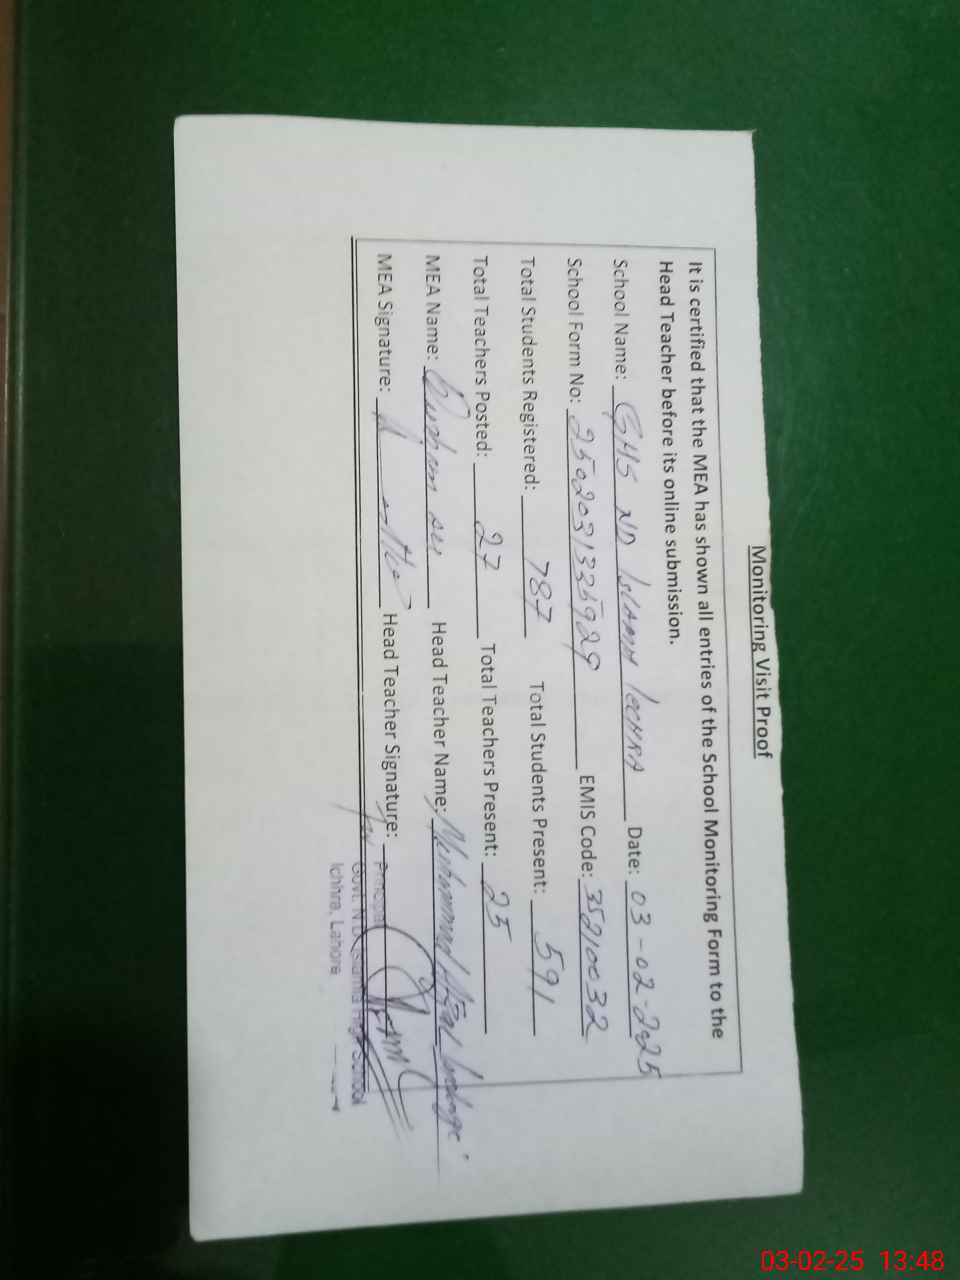 Monitoring Visit Proof
It is certified that the MEA has shown all entries of the School Monitoring Form to the
Head Teacher before its online submission.
School Name: GHS ND ISLAMIA IECHHRA Date: 03-02-2025
School Form No: 250203135929 EMIS Code: 35210032
Total Students Registered: 787 Total Students Present: 591
Total Teachers Posted: 27 Total Teachers Present: 25
MEA Name: Head Teacher Name: Muhammad
MEA Signature: Head Teacher Signature:
Principal
Govt. N.D. Islamia High School
Ichhra, Lahore
03-02-25 13:48